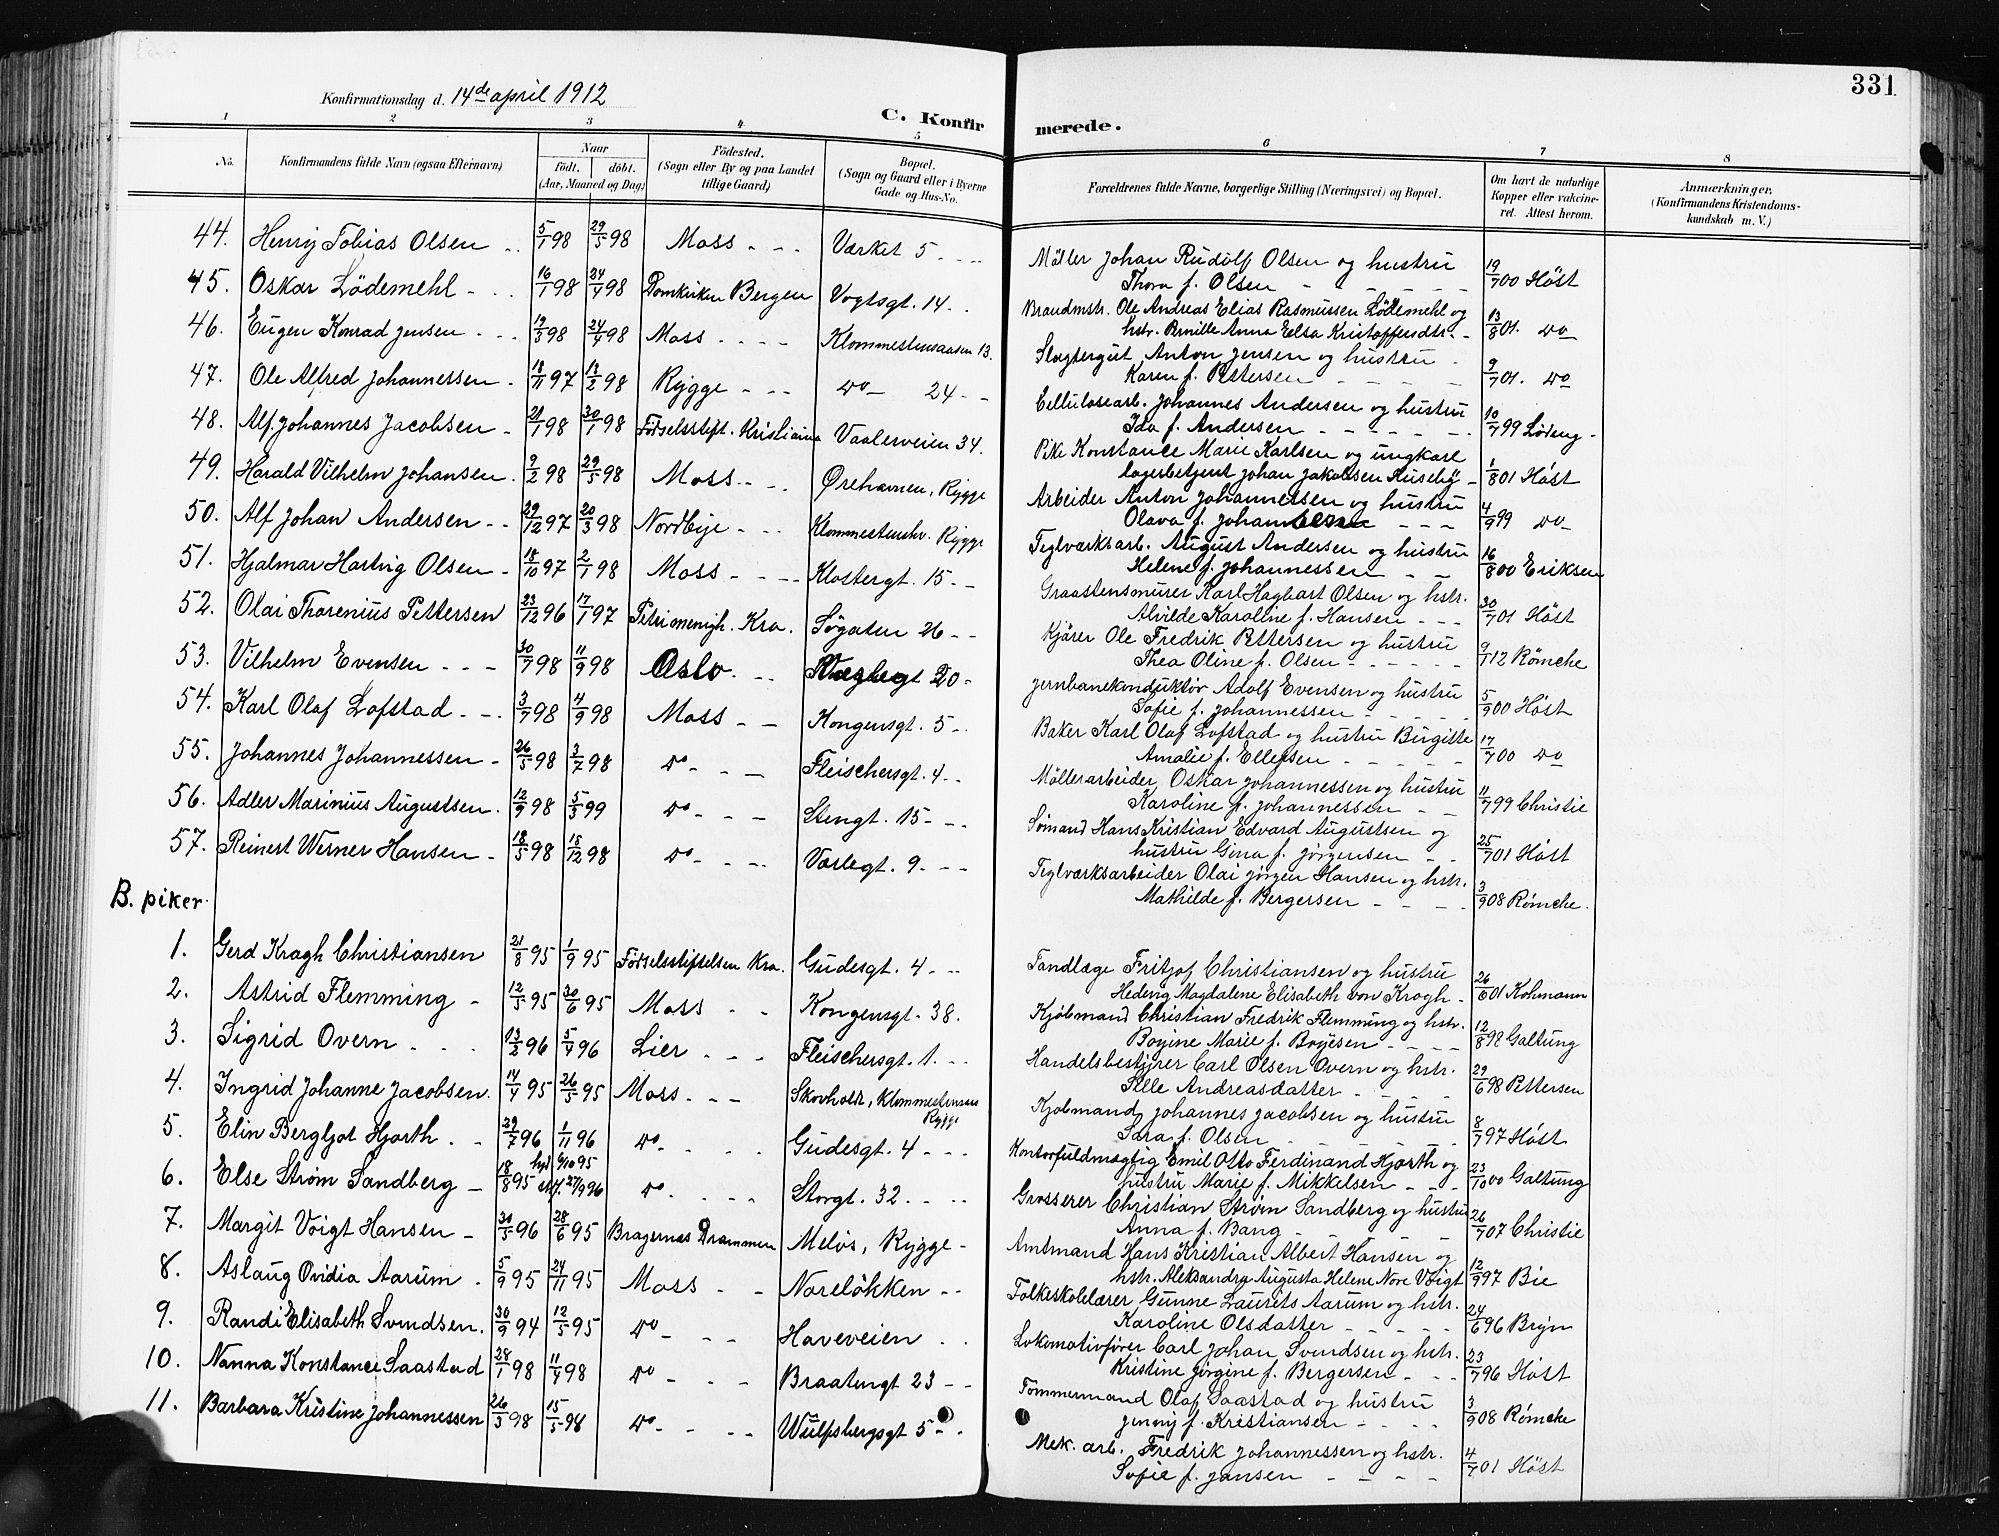 331
Konfirmationsdag d. 14de april 1912
C. Konfirmerede.
1 2 3 4 5 6 7 8
No. Konfirmandens fulde Navn (ogsaa Efternavn) Naar født. døbt. (Aar, Maaned og Dag) Fødested. (Sogn eller By og paa Landet tillige Gaard) Bopæl. (Sogn og Gaard eller i Byerne Gade og Hus-No. Forældrenes fulde Navne, borgerlige Stilling (Næringsvei) og Bopæl. Om havt de naturlige Kopper eller vaccineret. Attest herom. Anmærkninger. (Konfirmandens Kristendomskundskab m. V.)
44. Henry Tobias Olsen 5/1 98 29/5 98 Moss Værket 5 Møller Johan Rudolf Olsen og hustru Thora f. Olsen 19/7 00 Høst
45. Oskar Lødemehl 16/1 98 24/4 98 Domkirken Bergen Vogtsgt. 14 Brandmstr. Ole Andreas Elias Rasmussen Lødemehl og hstr. Bernille Anna Elsa Kristoffersdtr. 13/8 01. do
46. Eugen Konrad Jensen 19/3 98 24/4 98 Moss Klommestensaasen 13. Slagtergut Anton Jensen og hustru Karen f. Pettersen 9/7 01. do
47. Ole Alfred Johannessen 18/11 97 13/2 98 Rygge do 24 Cellulosearb. Johannes Andersen og hustru Ida f. Andersen 10/7 99 Løseng
48. Alf Johannes Jacobsen 21/1 98 30/1 98 Fødselsstift. Kristiania Vaalerveien 34. Pike Konstance Marie Karlsen og ungkarl lagerbetjent Johan Jakobsen Huseby 1/8 01 Høst
49. Harald Vilhelm Johansen 9/2 98 29/5 98 Moss Ørehavnen, Rygge Arbeider Anton Johannessen og hustru Olava f. Johannessen 4/9 99 do
50. Alf Johan Andersen 29/12 97 20/3 98 Nordbye Klommestenshv. Rygge Teglværksarb. August Andersen og hustru Helene f. Johannessen 16/8 00 Eriksen
51. Hjalmar Hartvig Olsen 18/10 97 2/1 98 Moss Klostergt. 15 Graastensmurer Karl Hagbart Olsen og hstr. Alvilde Karoline f. Hansen 30/7 01 Høst
52. Olai Thorenius Pettersen 23/12 96 17/1 97 Petri menigh. Kra. Søgaten 26 Kjører Ole Fredrik Pettersen og hustru Thea Oline f. Olsen 9/1 12 Rømcke
53. Vilhelm Evensen 30/7 98 11/9 98 Oslo 20 Jernbanekonduktør Adolf Evensen og hustru Sofie f. Johannessen 5/9 00 Høst
54. Karl Olaf Lofstad 3/7 98 4/9 98 Moss Kongensgt. 5 Baker Karl Olaf Lofstad og hustru Birgitte Amalie f. Ellefsen 17/7 00 do
55. Johannes Johannessen 26/5 98 3/7 98 do Fleischersgt. 4 Møllerarbeider Oskar Johannessen og hustru Karoline f. Johannessen 11/7 99 Christie
56. Adler Marinius Augustsen 12/9 98 5/3 99 do Stengt. 15 Sømand Hans Kristian Edvard Augustsen og hustru Gina f. Jørgensen 25/7 01 Høst
57. Reinert Werner Hansen 18/5 98 18/12 98 do Varlegt. 9 Teglværksarbeider Olai Jørgen Hansen og hstr. Mathilde f. Bergersen 3/9 08 Rømcke.
B. piker.
1. Gerd Kragh Christiansen 21/8 95 1/9 95 Fødselsstiftelsen Kra. Gudesgt. 4 Tandlæge Fritjof Christiansen og hustru Hedevig Magdalene Elisabeth von Krogh 26/6 01 Kohmann
2. Astrid Flemming 12/5 95 30/6 95 Moss Kongensgt. 38. Kjøbmand Christian Fredrik Flemming og hstr. Boyine Marie f. Boyesen 12/8 98 Galtung
3. Sigrid Overn 13/2 96 5/4 96 Lier Fleischersgt. 1. Handelsbestyrer Carl Olsen Overn og hstr. Sille Andreasdatter 29/6 98 Pettersen
4. Ingrid Johanne Jacobsen 14/4 95 26/5 95 Moss Skovholdt, Klommestensaas Rygge Kjøbmand Johannes Jacobsen og hustru Sara f. Olsen 8/7 97 Høst
5. Elin Bergljot Hjorth 29/7 96 1/11 96 do Gudesgt. 4 Kontorfuldmægtig Emil Otto Ferdinand Hjorth og hustru Marie f. Mikkelsen 23/10 00 Galtung
6. Else Strøm Sandberg 18/8 95 hjd. 6/10 95 stf. 27/9 96 do Storgt. 32 Grosserer Christian Strøm Sandberg og hustru Anna f. Bang 26/7 07 Christie
7. Margit Voigt Hansen 30/5 96 28/6 95 Bragernes Drammen Meløs, Rygge Amtmand Hans Kristian Albert Hansen og hstr. Aleksandra Augusta Helene Nore Voigt 12/9 97 Bie
8. Aslaug Ovidia Aarum 5/9 95 24/11 95 Moss Noreløkken Folkeskolelærer Gunne Laurits Aarum og hstr. Karoline Olsdatter 24/6 96 Bryn
9. Randi Elisabeth Svendsen. 30/9 94 12/5 95 do Haveveien Lokomotivfører Carl Johan Svendsen og hstr. Kristine Jørgine f. Bergersen 23/7 96 Høst
10. Nanna Konstance Saastad 28/1 98 11/4 98 do Braatengt 23 Tømmermand Olaf Saastad og hustru Jenny f. Kristiansen 3/9 08 Rømcke
11. Barbara Kristine Johannessen 26/3 98 15/5 98 do Wulfsbergsgt 5 Mek. arb. Fredrik Johannessen og hstr. Sofie f. Jansen 4/7 01 Høst